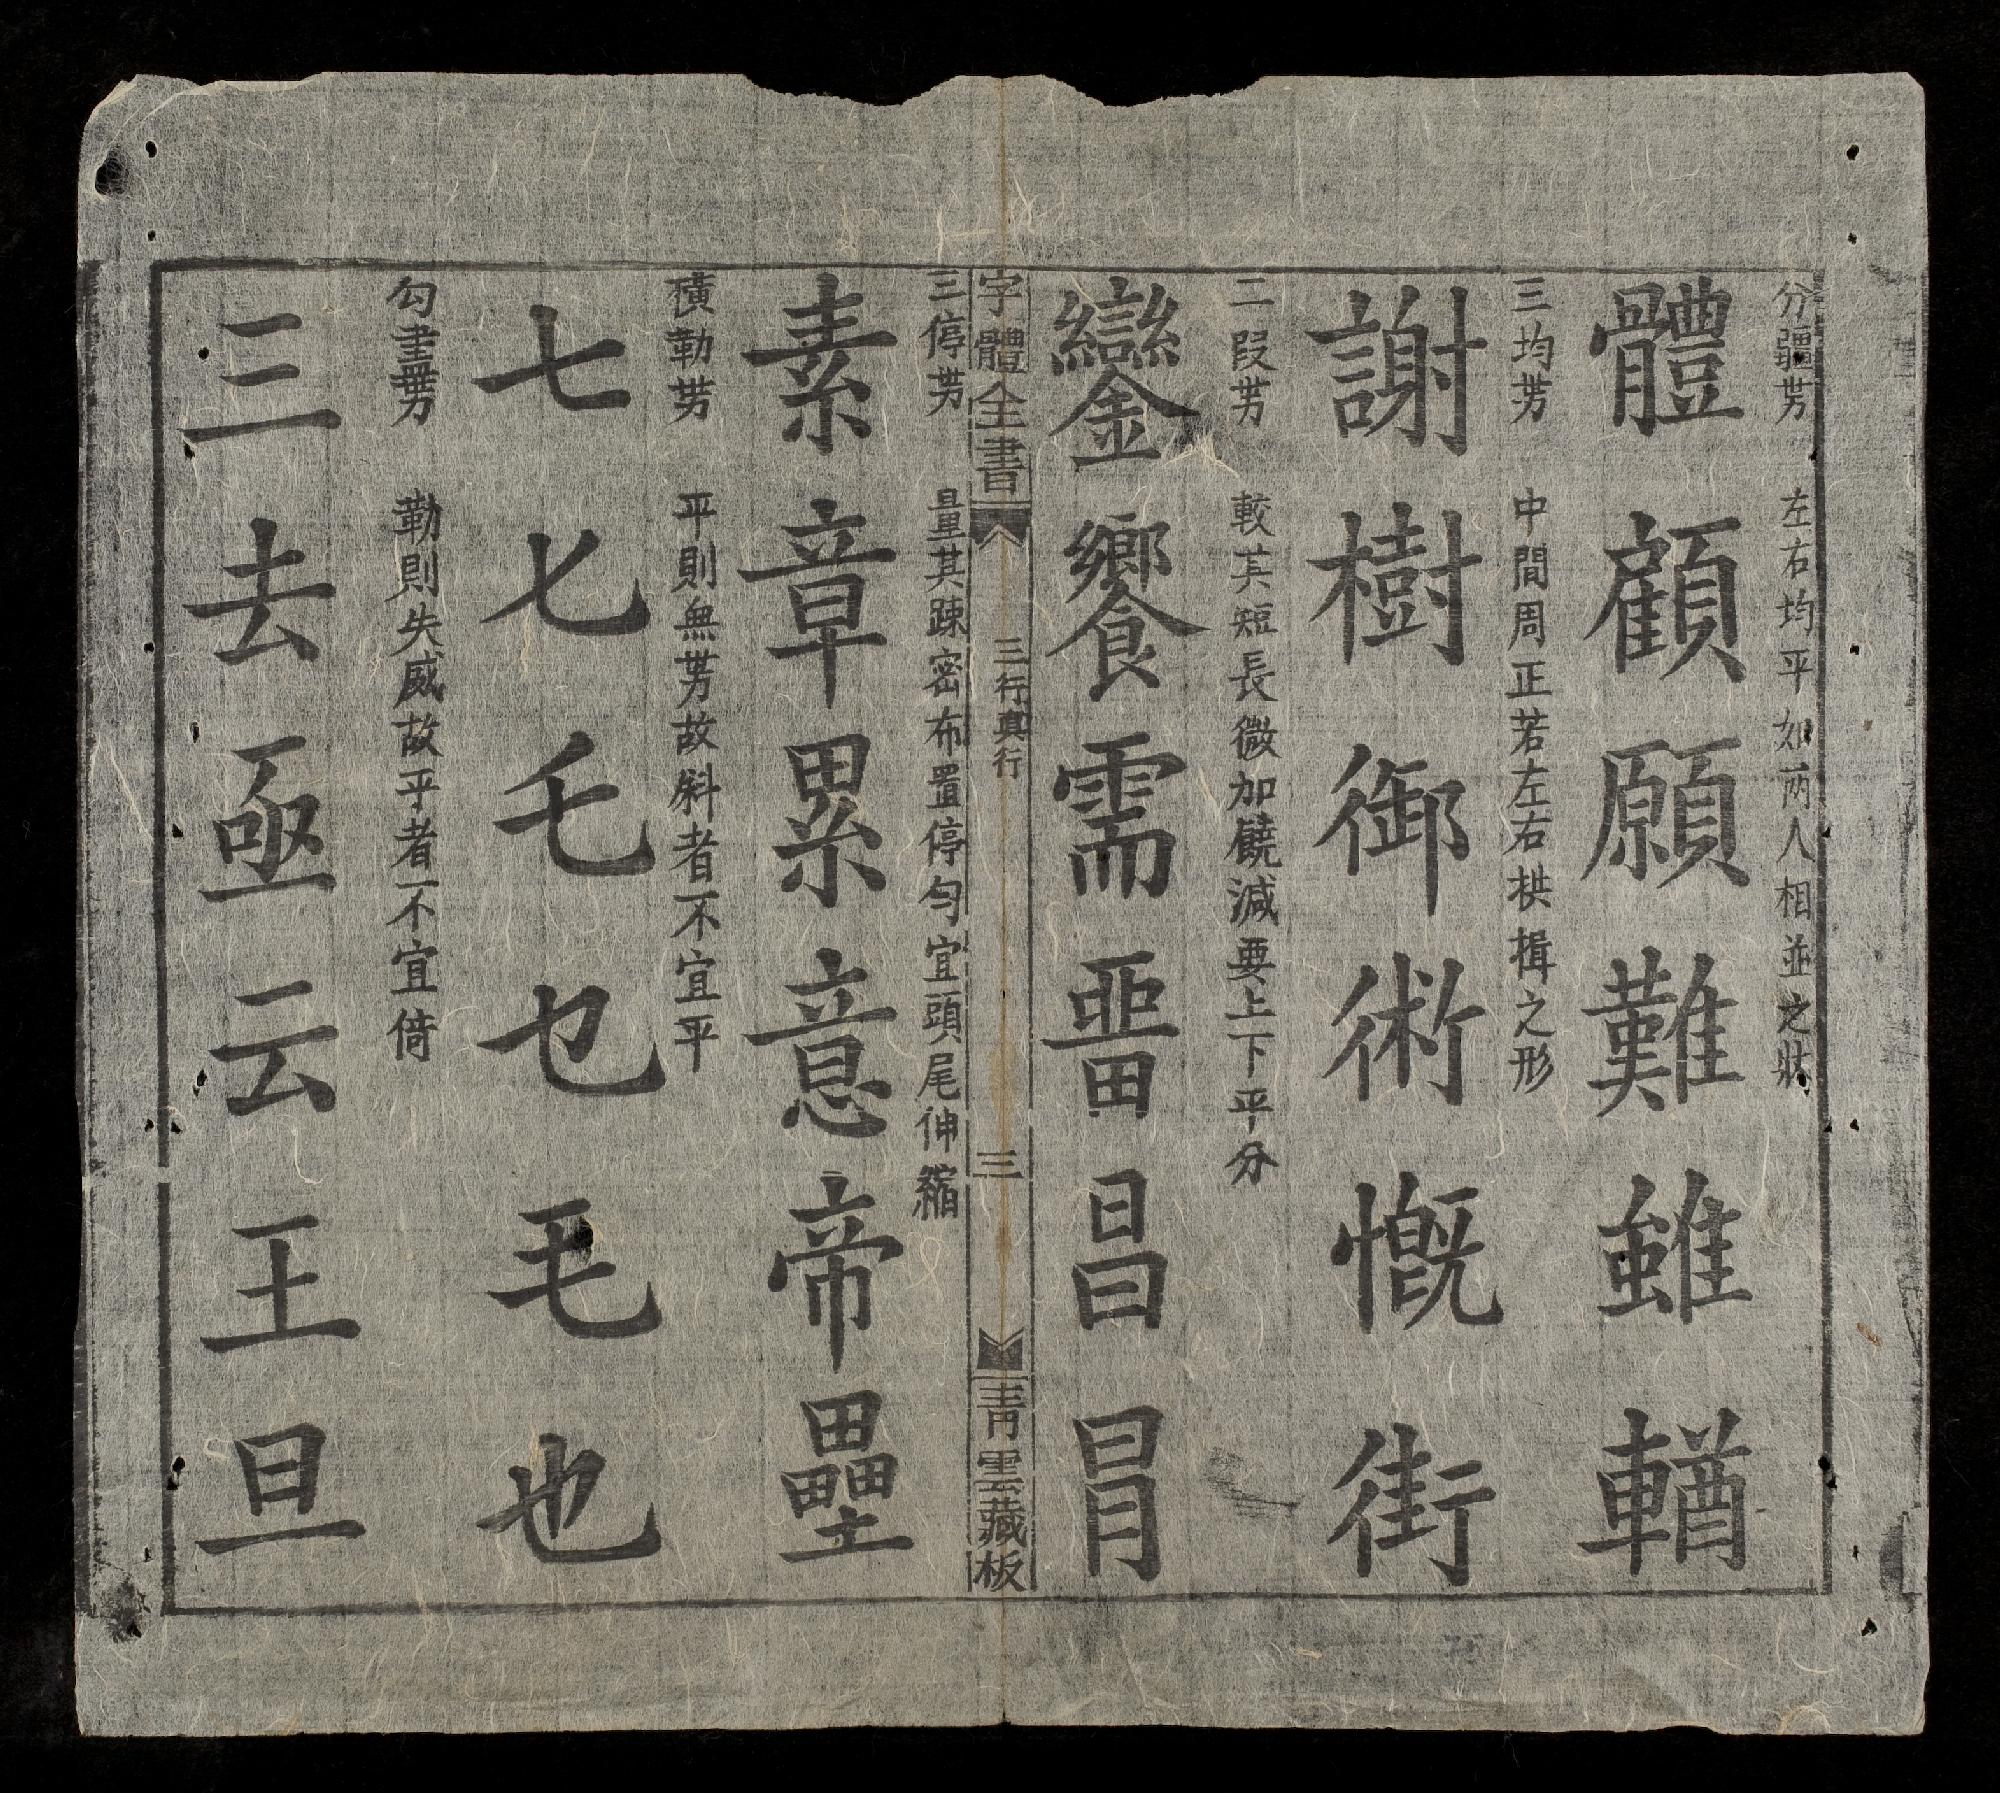 分疆势 左右均平如两人相並之狀
體顧願難雖輶
三均势 中間周正若左右拱揖之形
謝樹御術慨街
二段势 較其短長微加饒減要上下平分
鑾饗需畺昌冐
字體全書 三行真行 三 青雲藏板
三停势 量其疎密布置停勻宜頭尾伸縮
素章累意帝壘
橫勒势 平則無势故斜者不宜平
七𠤎乇乜毛也
勾畫势 勒則失威故平者不宜倚
三去亟云王旦